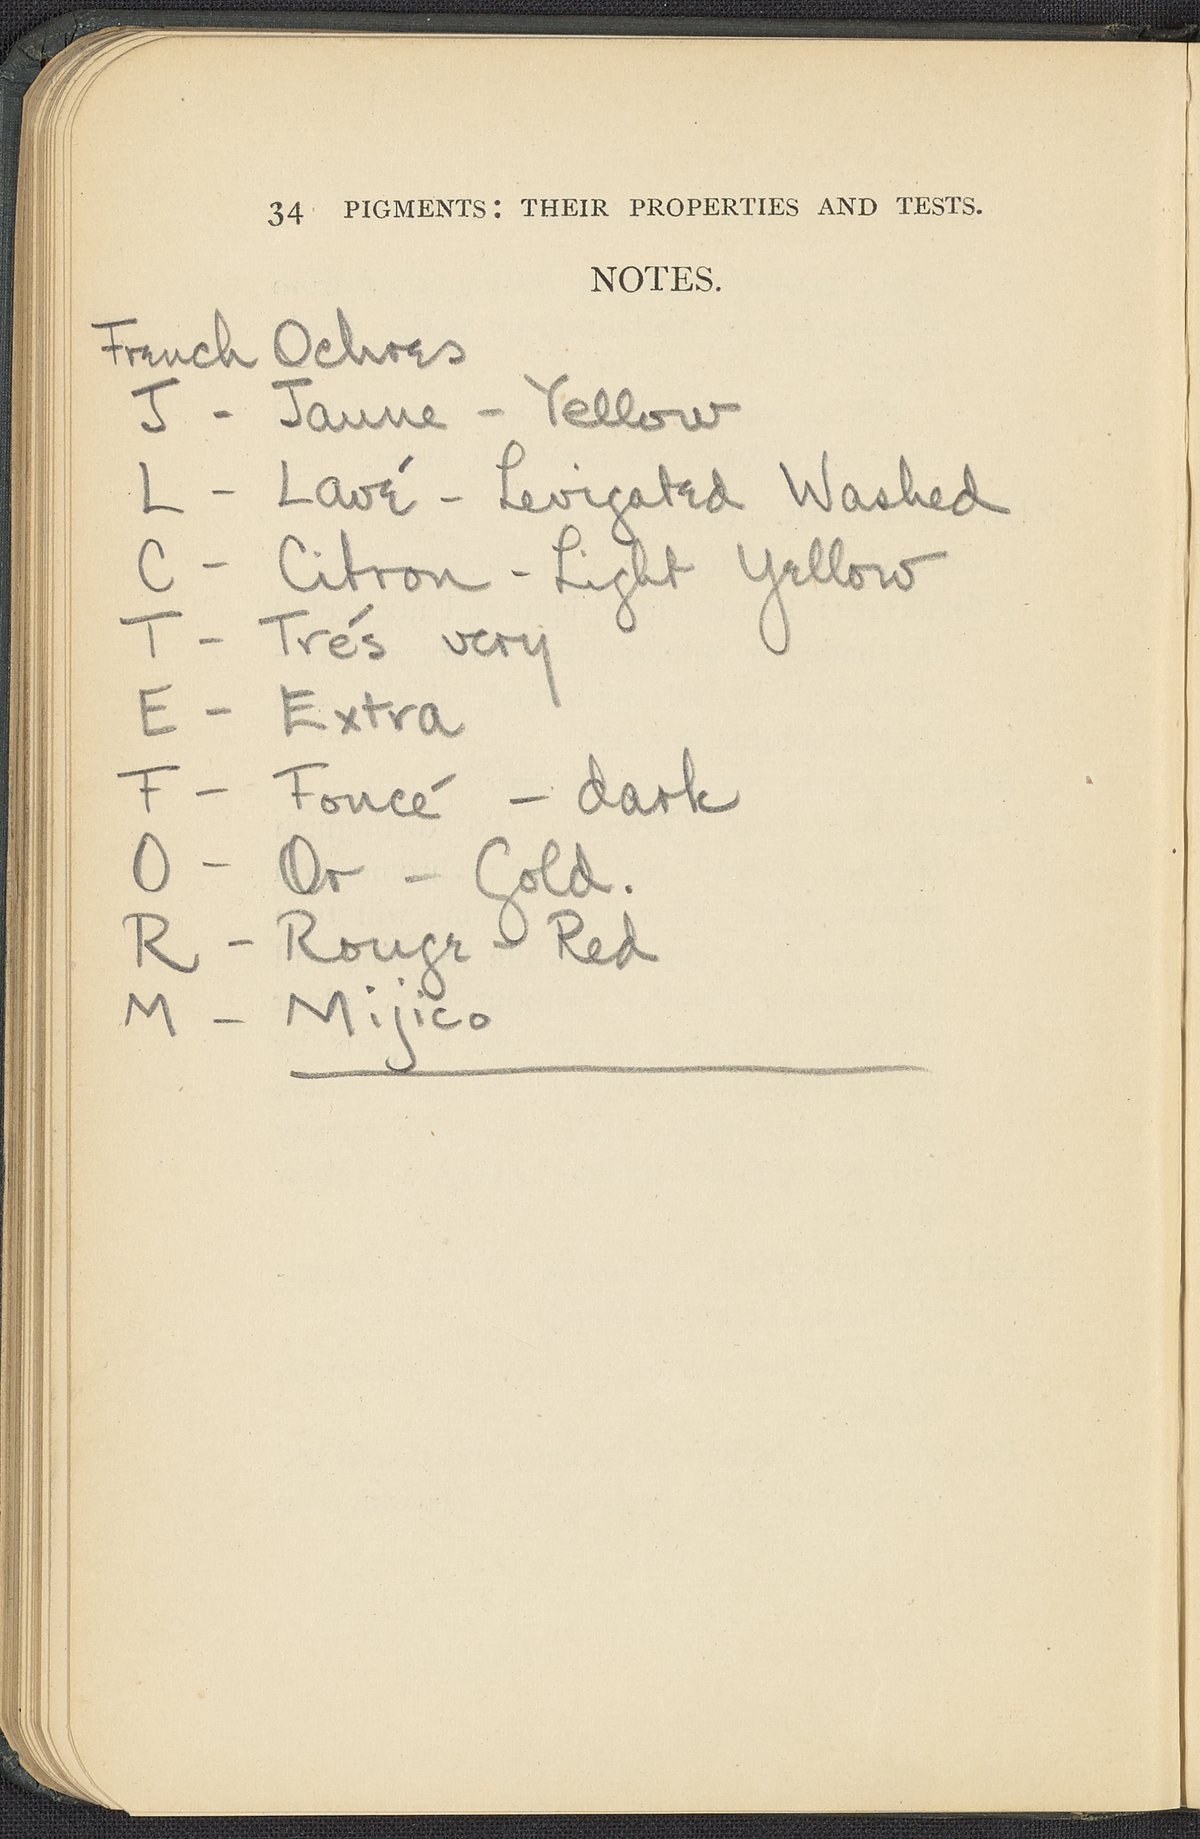 34 PIGMENTS: THEIR PROPERTIES AND TESTS.
NOTES.
French Ochres
J - Jaune - Yellow
L - Lavé - Levigated Washed
C - Citron - Light Yellow
T - Trés very
E - Extra
F - Foncé - dark
O - Or - Gold.
R - Rouge - Red
M - Mijico